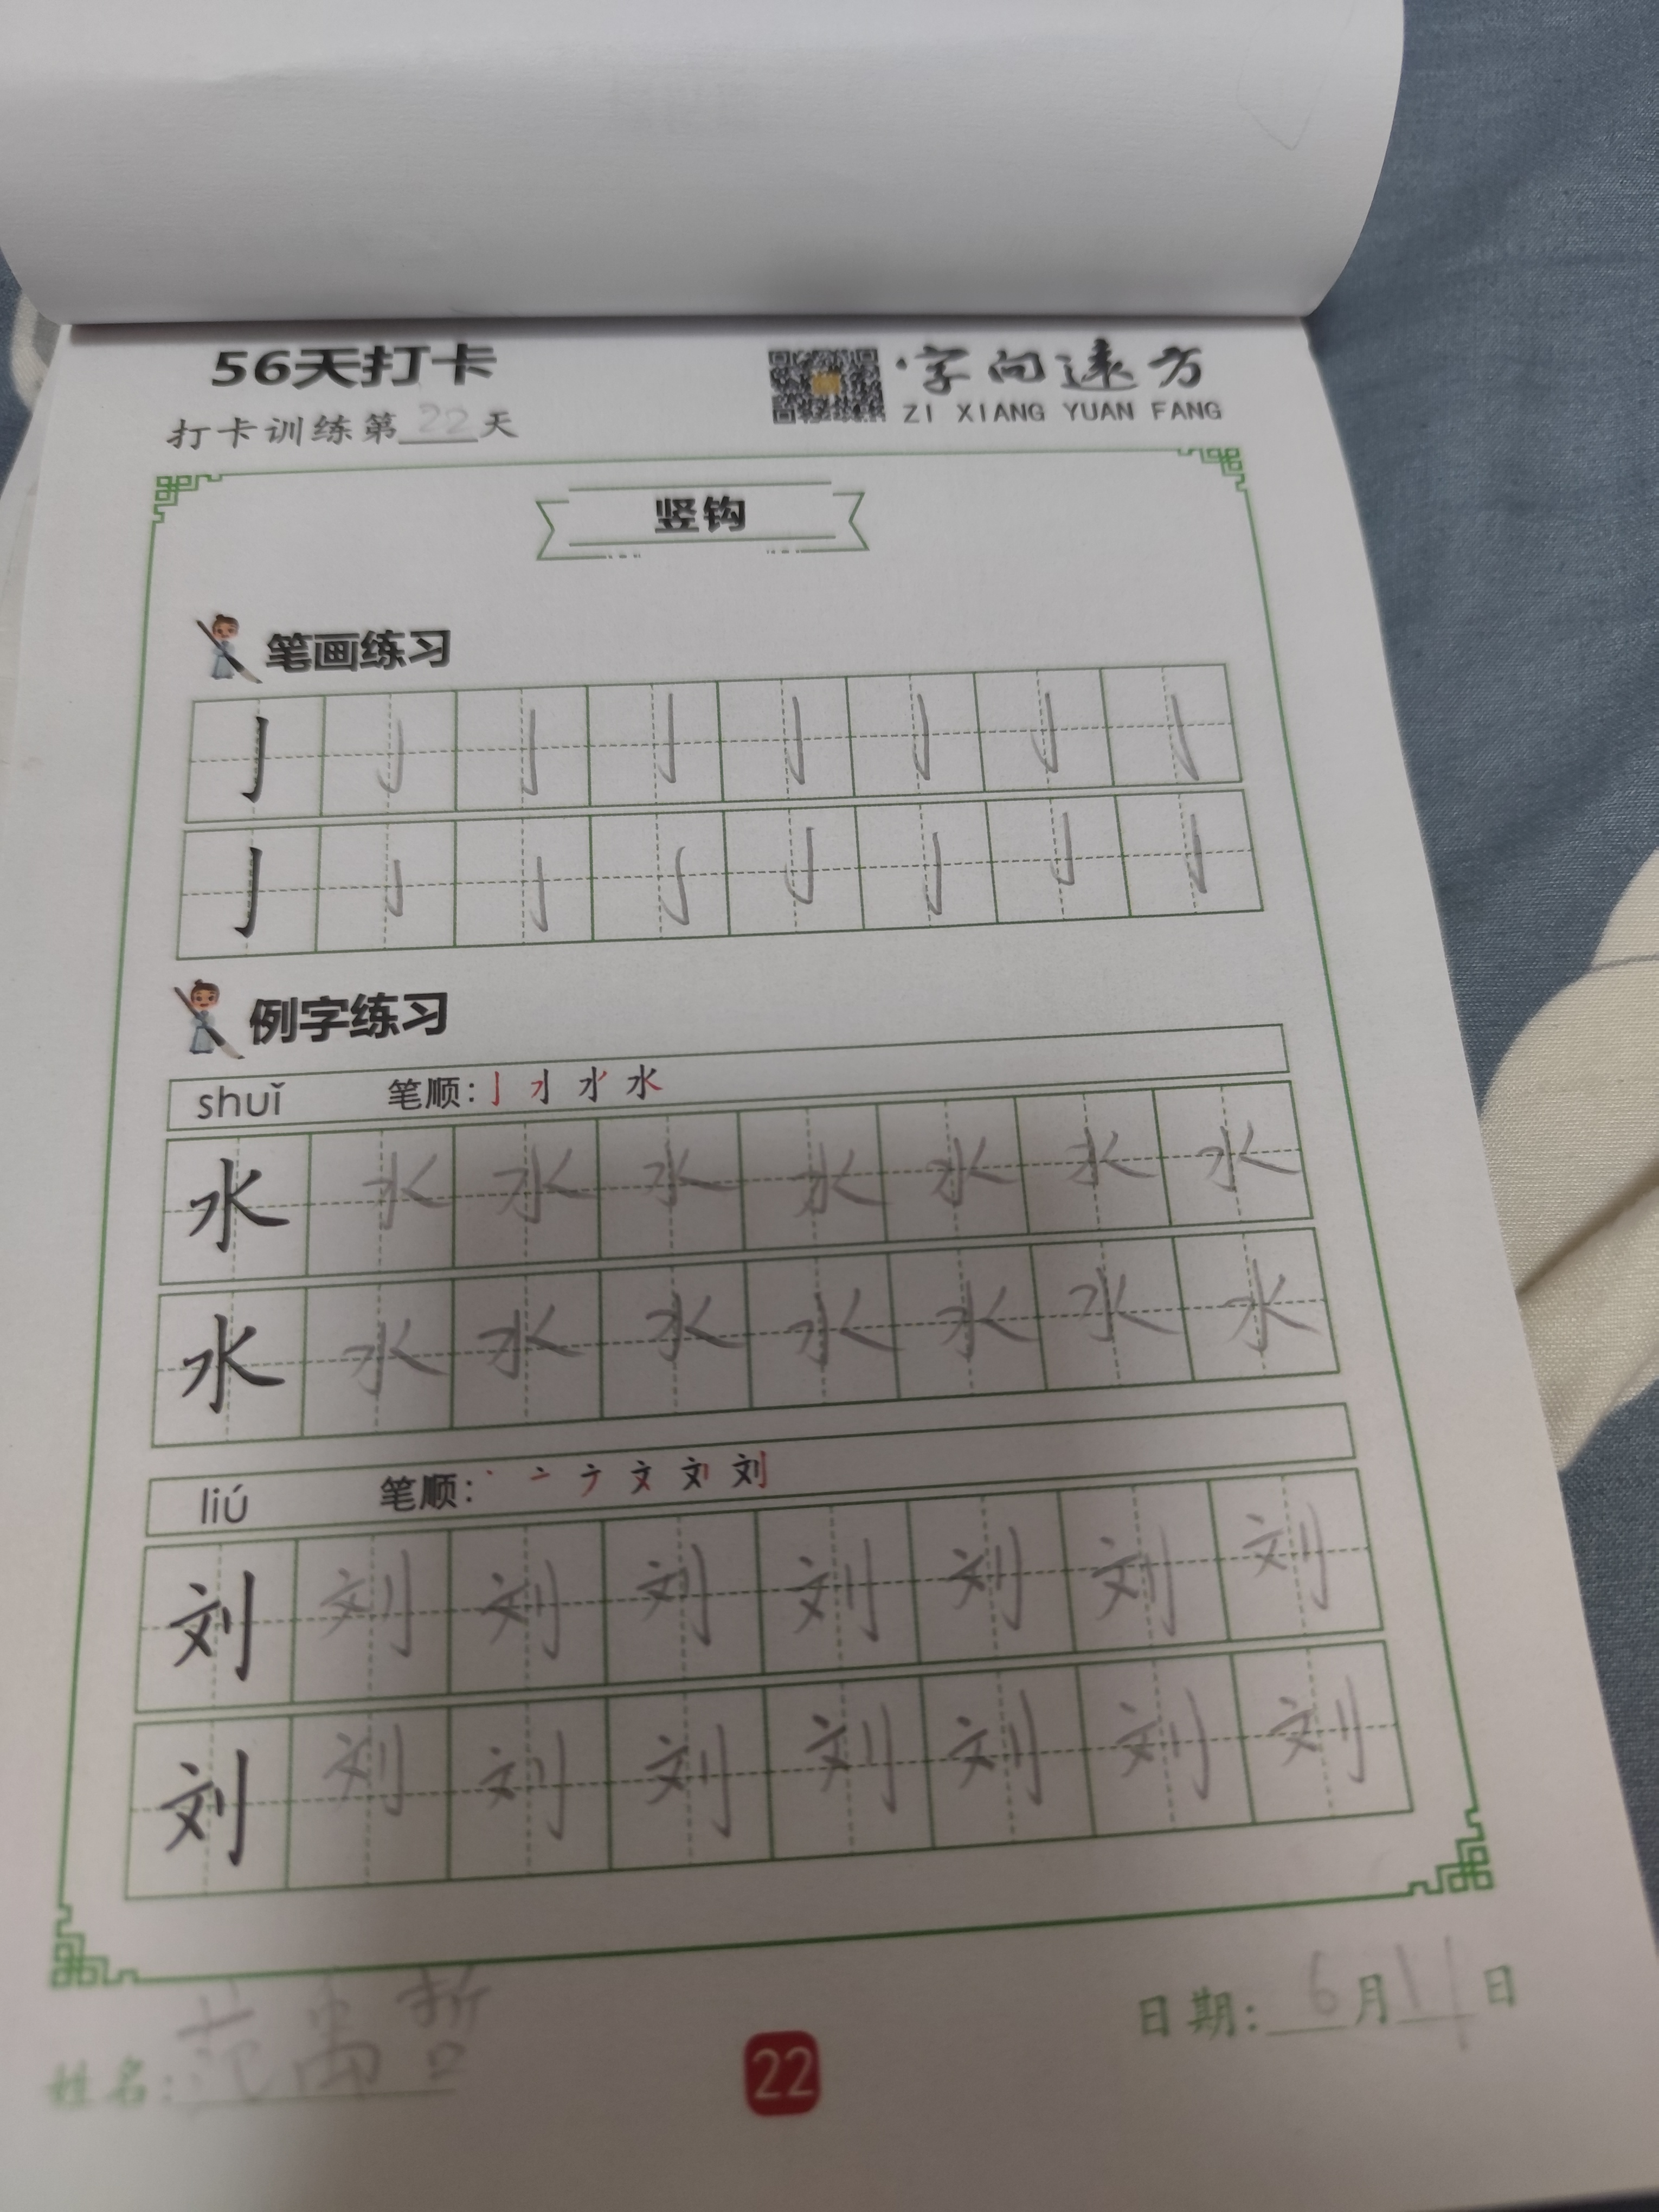 56天打卡
字向远方
ZI XIANG YUAN FANG
打卡训练第22天
竖钩
笔画练习
亅亅亅亅亅亅亅亅
亅亅亅亅亅亅亅亅
例字练习
shuǐ 笔顺:
水水水水水水水水
水水水水水水水水
liú 笔顺:
刘刘刘刘刘刘刘刘
刘刘刘刘刘刘刘刘
姓名:范禹哲
22
日期:6月11日